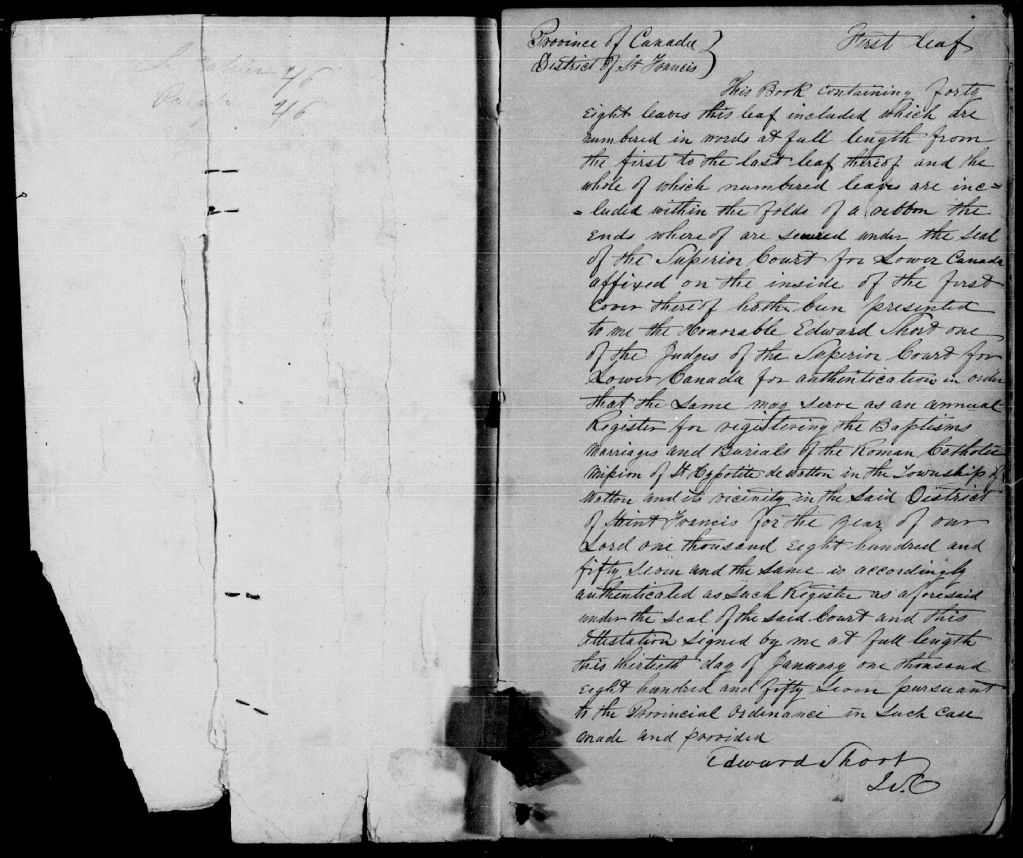 46
46
Province of Canada }
District of St Francis }
First leaf
This Book containing forty
Eight leaves this leaf included which are
numbered in words at full length from
the first to the last leaf thereof and the
whole of which numbered leaves are inc=
=luded within the folds of a ribbon the
Ends where of are secured under the Seal
of the Superior Court for Lower Canada
affixed on the inside of the first
Cover thereof hath been presented
to me the Honorable Edward Short one
of the Judges of the Superior Court for
Lower Canada for authentication in order
that the Same may serve as an annual
Register for registering the Baptisms
Marriages and Burials of the Roman Catholic
Mission of St Hypolite de Wotton in the Township of
Wotton and its vicinity in the Said District
of Saint Francis for the year of our
Lord one thousand Eight hundred and
fifty Seven and the same is accordingly
authenticated as Such Register as aforesaid
under the Seal of the said Court and this
Attestation Signed by me at full length
this thirtieth day of January one thousand
Eight hundred and fifty Seven pursuant
to the Provincial Ordinance in Such Case
made and provided
Edward Short
J.S.C